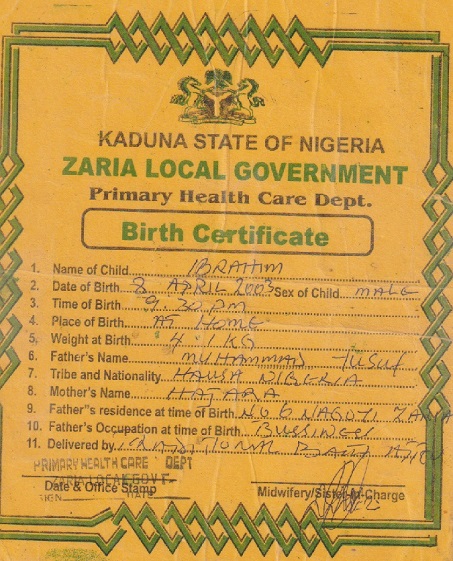 KADUNA STATE OF NIGERIA
ZARIA LOCAL GOVERNMENT
Primary Health Care Dept.
Birth Certificate
1. Name of Child IBRAHIM
2. Date of Birth 8 APRIL 2003 Sex of Child MALE
3. Time of Birth 9.30 PM
4. Place of Birth AT HOME
5. Weight at Birth 4.1KG
6. Father's Name MUHAMMAD YUSUF
7. Tribe and Nationality HAUSA NIGERIA
8. Mother's Name HAJARA
9. Father"s residence at time of Birth NO 6 ZARIA
10. Father's Occupation at time of Birth
11. Delivered by
PRIMARY HEALTH CARE DEPT
ZARIA LOCAL GOVT.
Date & Office Stamp
Midwifery/Sister-In-Charge
SIGN